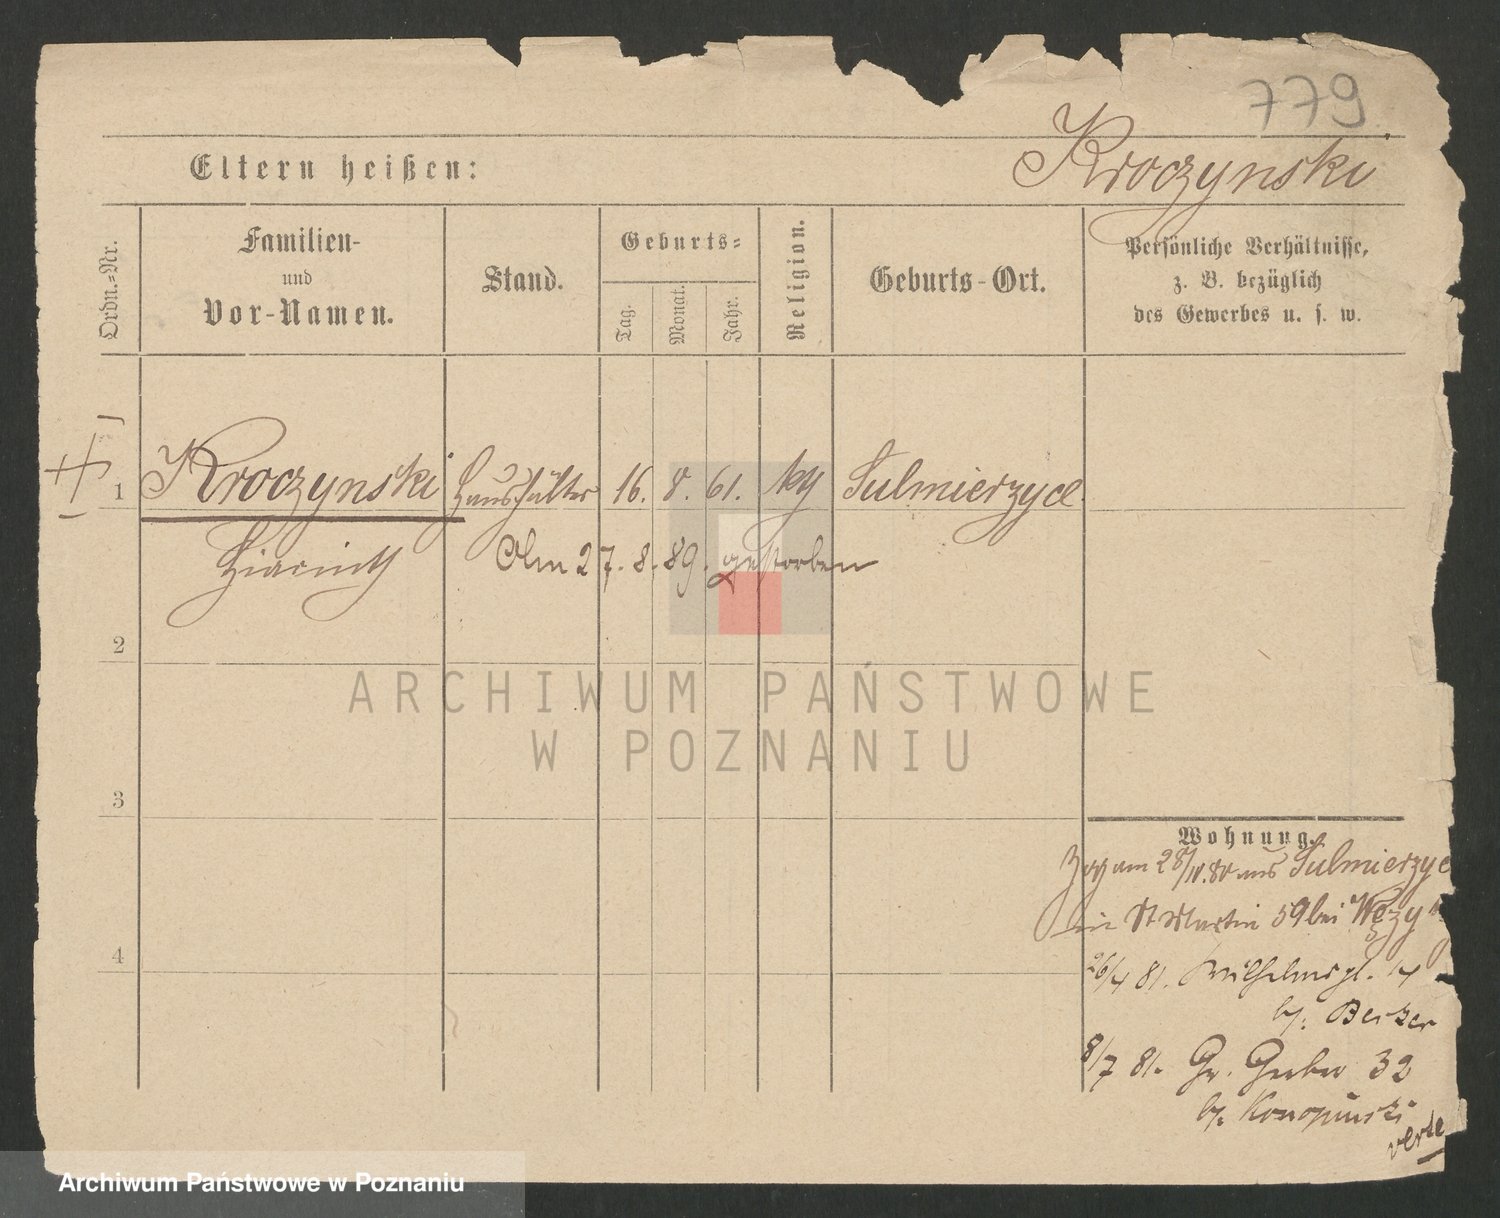 779
Eltern heißen:
Kroczynski
Ordn.-Nr.
Familien-
und
Vor-Namen.
Stand.
Geburts-
Tag.
Monat.
Jahr.
Religion.
Geburts-Ort.
Persönliche Verhältnisse,
z. B. bezüglich
des Gewerbes u. s. w.
1 Kroczynski Haushälter 16. 8. 61. kg Sulmierzyce
Hiacinth Am 27. 8. 89. gestorben
2
3
4
Wohnung.
Zog am 28/IV.80 aus Sulmierzyce
in St Martin 59 bei
26/4 81. Wilhelmspl. 14
b/. Berker
8/7 81. Gr. Gerber 32
b/. Konopinski
verte
ARCHIWUM PAŃSTWOWE
W POZNANIU
Archiwum Państwowe w Poznaniu